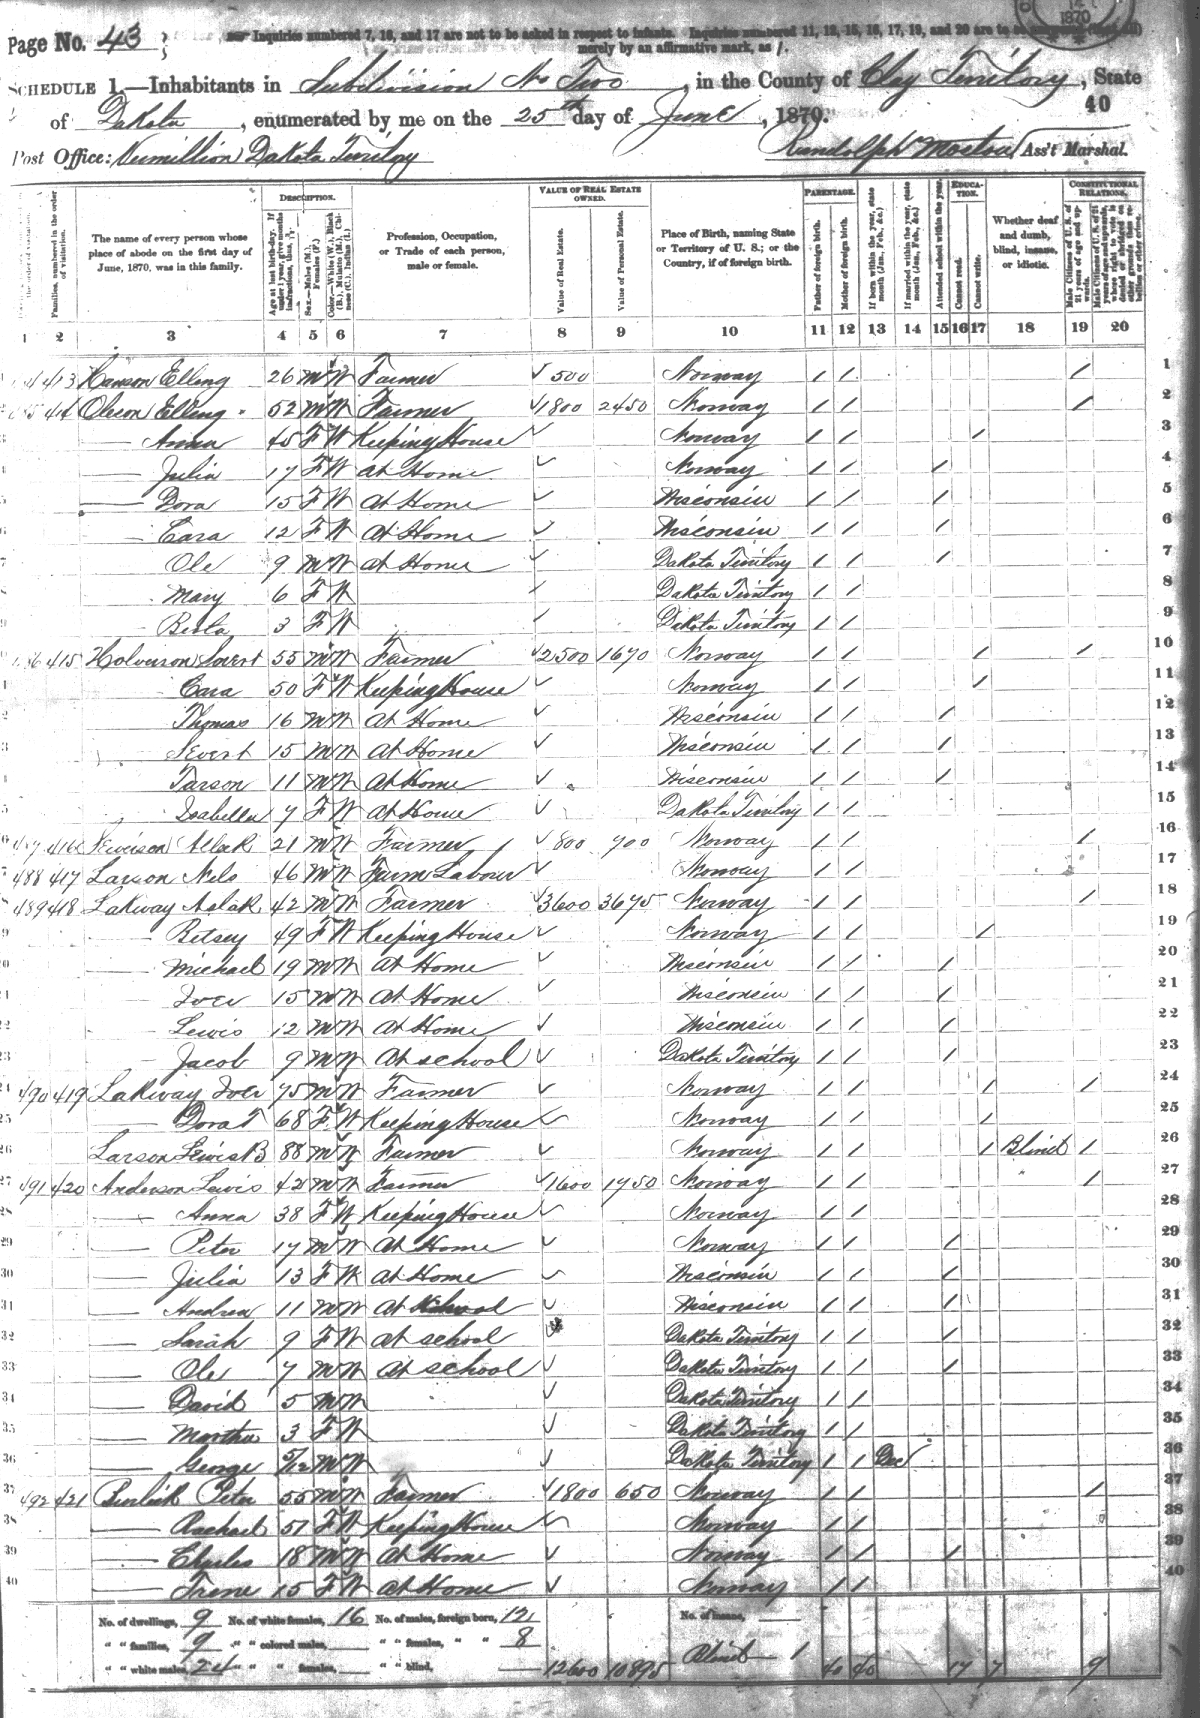 Page No. 43
Inquiries numbered 7, 16, and 17 are not to be asked in respect to infants. Inquiries numbered 11, 12, 15, 16, 17, 19, and 20 are to be
merely by an affirmative mark, as /.
1870
SCHEDULE 1.—Inhabitants in Subdivision No Two, in the County of Clay Territory, State
40
of Dakota, enumerated by me on the 25th day of June, 1870.
Post Office: Vermillion Dakota Territory Randolph Ass't Marshal.
DESCRIPTION. VALUE OF REAL ESTATE OWNED. PARENTAGE. EDUCATION. CONSTITUTIONAL RELATIONS.
Families, numbered in the order of visitation.
The name of every person whose place of abode on the first day of June, 1870, was in this family.
Age at last birth-day. If under 1 year, give months in fractions, thus,
Sex.—Males (M.), Females (F.)
Color.—White (W.), Black (B.), Mulatto (M.), Chinese (C.), Indian (I.)
Profession, Occupation, or Trade of each person, male or female.
Value of Real Estate.
Value of Personal Estate.
Place of Birth, naming State or Territory of U. S.; or the Country, if of foreign birth.
Father of foreign birth.
Mother of foreign birth.
If born within the year, state month (Jan., Feb., &c.)
If married within the year, state month (Jan., Feb., &c.)
Attended school within the year.
Cannot read.
Cannot write.
Whether deaf and dumb, blind, insane, or idiotic.
Male Citizens of U. S. of 21 years of age and upwards.
Male Citizens of U. S. of 21 years of age and upwards, whose right to vote is denied or abridged on other grounds than rebellion or other crime.
1 2 3 4 5 6 7 8 9 10 11 12 13 14 15 16 17 18 19 20
413 Hanson Elling 26 M W Farmer 500 Norway / / / 1
414 Oleson Elling 52 M W Farmer 1800 2450 Norway / / / 2
— Anna 45 F W Keeping House Norway / / / 3
— Julia 17 F W At Home Norway / / / 4
— Dora 15 F W At Home Wisconsin / / / 5
— Cara 12 F W At Home Wisconsin / / / 6
Ole 9 M W At Home Dakota Territory / / / 7
Mary 6 F W Dakota Territory / / 8
— 3 F W Dakota Territory / / 9
415 Holverson Severt 55 M W Farmer 2500 1670 Norway / / / / 10
— Cara 50 F W Keeping House Norway / / / 11
Thomas 16 M W At Home Wisconsin / / / 12
Severt 15 M W At Home Wisconsin / / / 13
Tarson 11 M W At Home Wisconsin / / / 14
Isabella 7 F W At Home Dakota Territory / / 15
487 416 21 M W Farmer 800 700 Norway / / / 16
488 417 Larson Nels 46 M W Farm Labour Norway / / 17
489 418 Lakway Aslak 42 M W Farmer 3600 3675 Norway / / / 18
— Betsey 49 F W Keeping House Norway / / / 19
— Michael 19 M W At Home Wisconsin / / / 20
— Iver 15 M W At Home Wisconsin / / / 21
— Lewis 12 M W At Home Wisconsin / / / 22
— Jacob 9 M W At school Dakota Territory / / / 23
490 419 Lakway Iver 75 M W Farmer Norway / / / / 24
— Dora T 68 F W Keeping House Norway / / / 25
Larson Lewis B 88 M W Farmer Norway / / / Blind / 26
491 420 Anderson Lewis 42 M W Farmer 1600 1750 Norway / / / 27
— Anna 38 F W Keeping House Norway / / 28
— Peter 17 M W At Home Norway / / / 29
— Julia 13 F W At Home Wisconsin / / / 30
— Andrew 11 M W At school Wisconsin / / / 31
— Sarah 9 F W At school Dakota Territory / / / 32
— Ole 7 M W At school Dakota Territory / / / 33
— David 5 M W Dakota Territory / / 34
— Martha 3 F W Dakota Territory / / 35
— George 5/12 M W Dakota Territory / / Dec 36
492 421 Peter 55 M W Farmer 1800 650 Norway / / / 37
— Rachael 51 F W Keeping House Norway / / 38
— Charles 18 M W At Home Norway / / / 39
— Trene 15 F W At Home Norway / / 40
No. of dwellings, 9 No. of white females, 16 No. of males, foreign born, 12 No. of insane,
" " families, 9 " " colored males, " " females, " " 8 Blind 1
" " white males, 24 " " " females, " " blind, 12600 10895 40 40 17 7 9